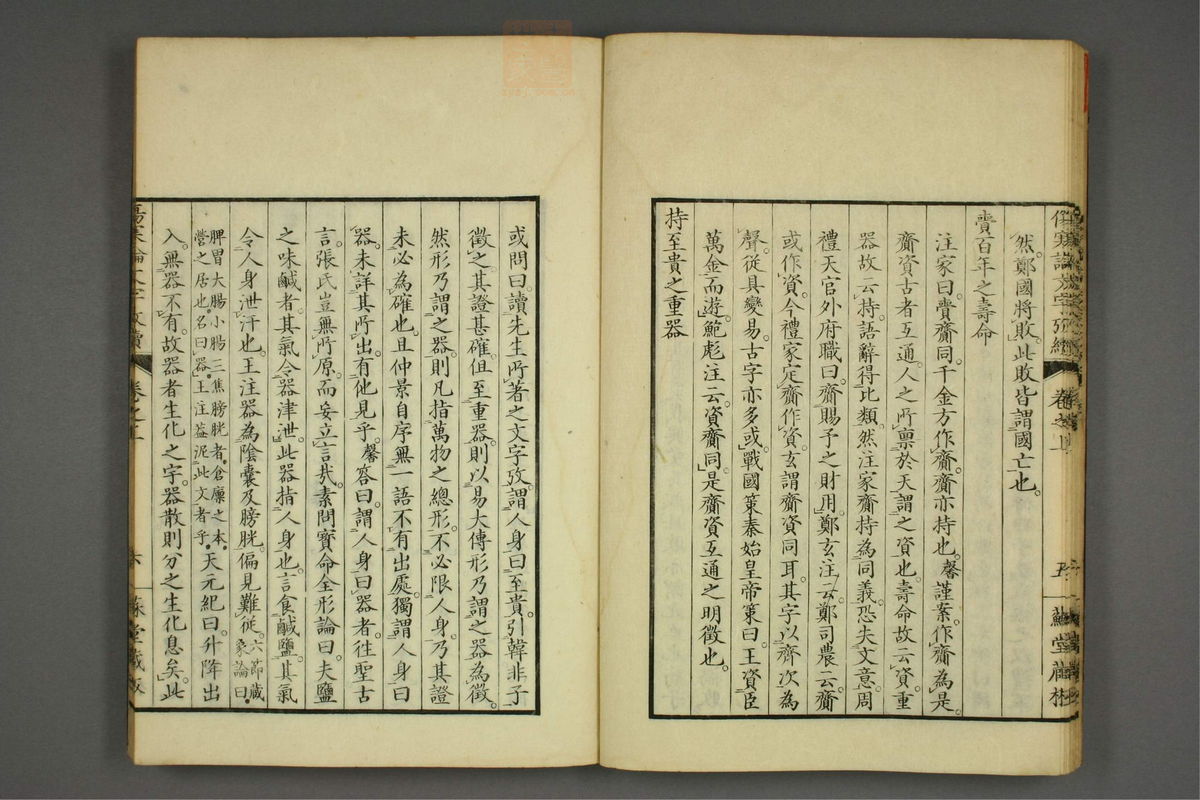 然鄭國將敗此敗皆謂國亡也
賷百年之壽命
注家曰賷齎同千金方作齎齎亦持也馨謹案作齎為是
齎資古者互通人之所稟於天謂之資也壽命故云資重
器故云持語辭得比類然注家齎持為同義恐失文意周
禮天官外府職曰齎賜予之財用鄭玄注云鄭司農云齎
或作資今禮家定齎作資玄謂齎資同耳其字以齊次為
聲從貝變易古字亦多或戰國策秦始皇帝策曰王資臣
萬金而遊鮑彪注云資齎同是齎資互通之明徵也
持至貴之重器
或問曰讀先生所著之文字攷謂人身曰至貴引韓非子
徵之其證甚確但至重器則以易大傳形乃謂之器為徵
然形乃謂之器則凡指萬物之總形不必限人身乃其證
未必為確也且仲景自序無一語不有出處獨謂人身曰
器未詳其所出有他見乎馨答曰謂人身曰器者往聖古
言張氏豈無所原而妄立言哉素問寶命全形論曰夫鹽
之味鹹者其氣令器津泄此器指人身也言食鹹鹽其氣
令人身泄汗也王注器為陰囊及膀胱偏見難從六節藏
象論曰
脾胃大腸小腸三焦膀胱者倉廩之本
營之居也名曰器王注益泥此文者乎天元紀曰升降出
入無器不有故器者生化之宇器散則分之生化息矣此
卷之上
五
卷之上
六